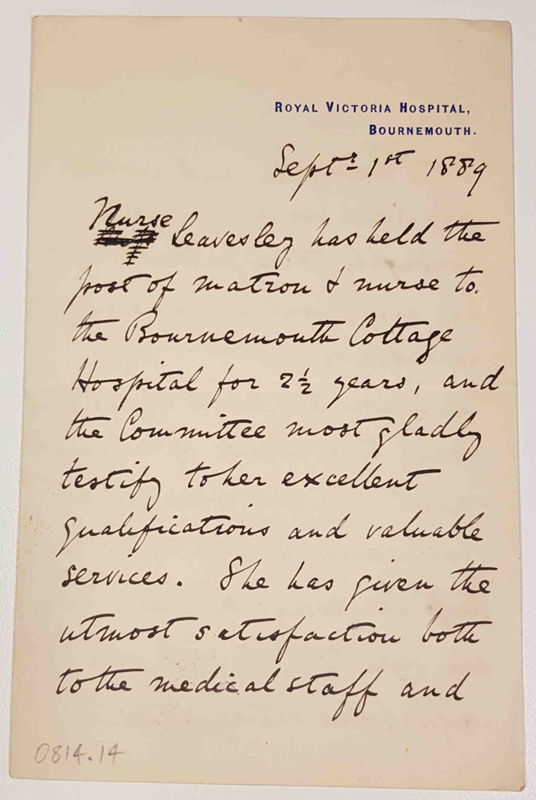 ROYAL VICTORIA HOSPITAL,
BOURNEMOUTH.
Septr. 1st 1889
Nurse
Leavesley has held the
post of matron & nurse to
the Bournemouth Cottage
Hospital for 2½ years, and
the Committee most gladly
testify to her excellent
qualifications and valuable
services. She has given the
utmost satisfaction both
to the medical staff and
0814.14